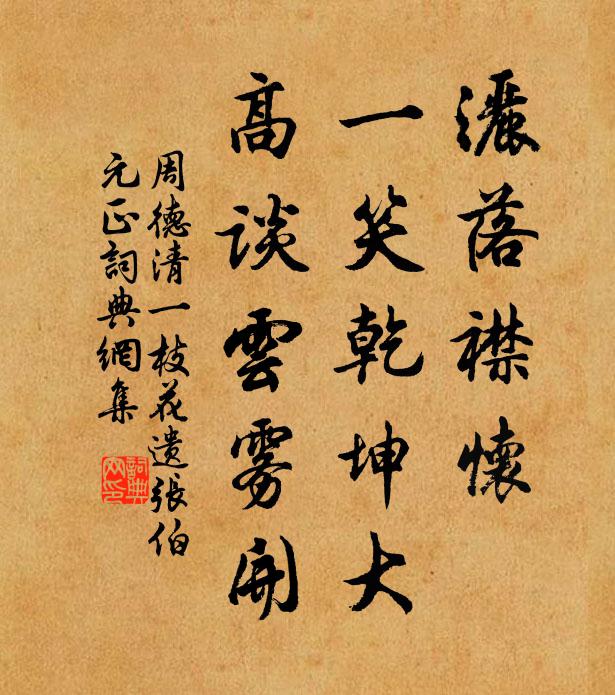 灑落襟懷
一笑乾坤大
高談雲霧開
周德清一枝花遺張伯
元正詞典網集
詞典